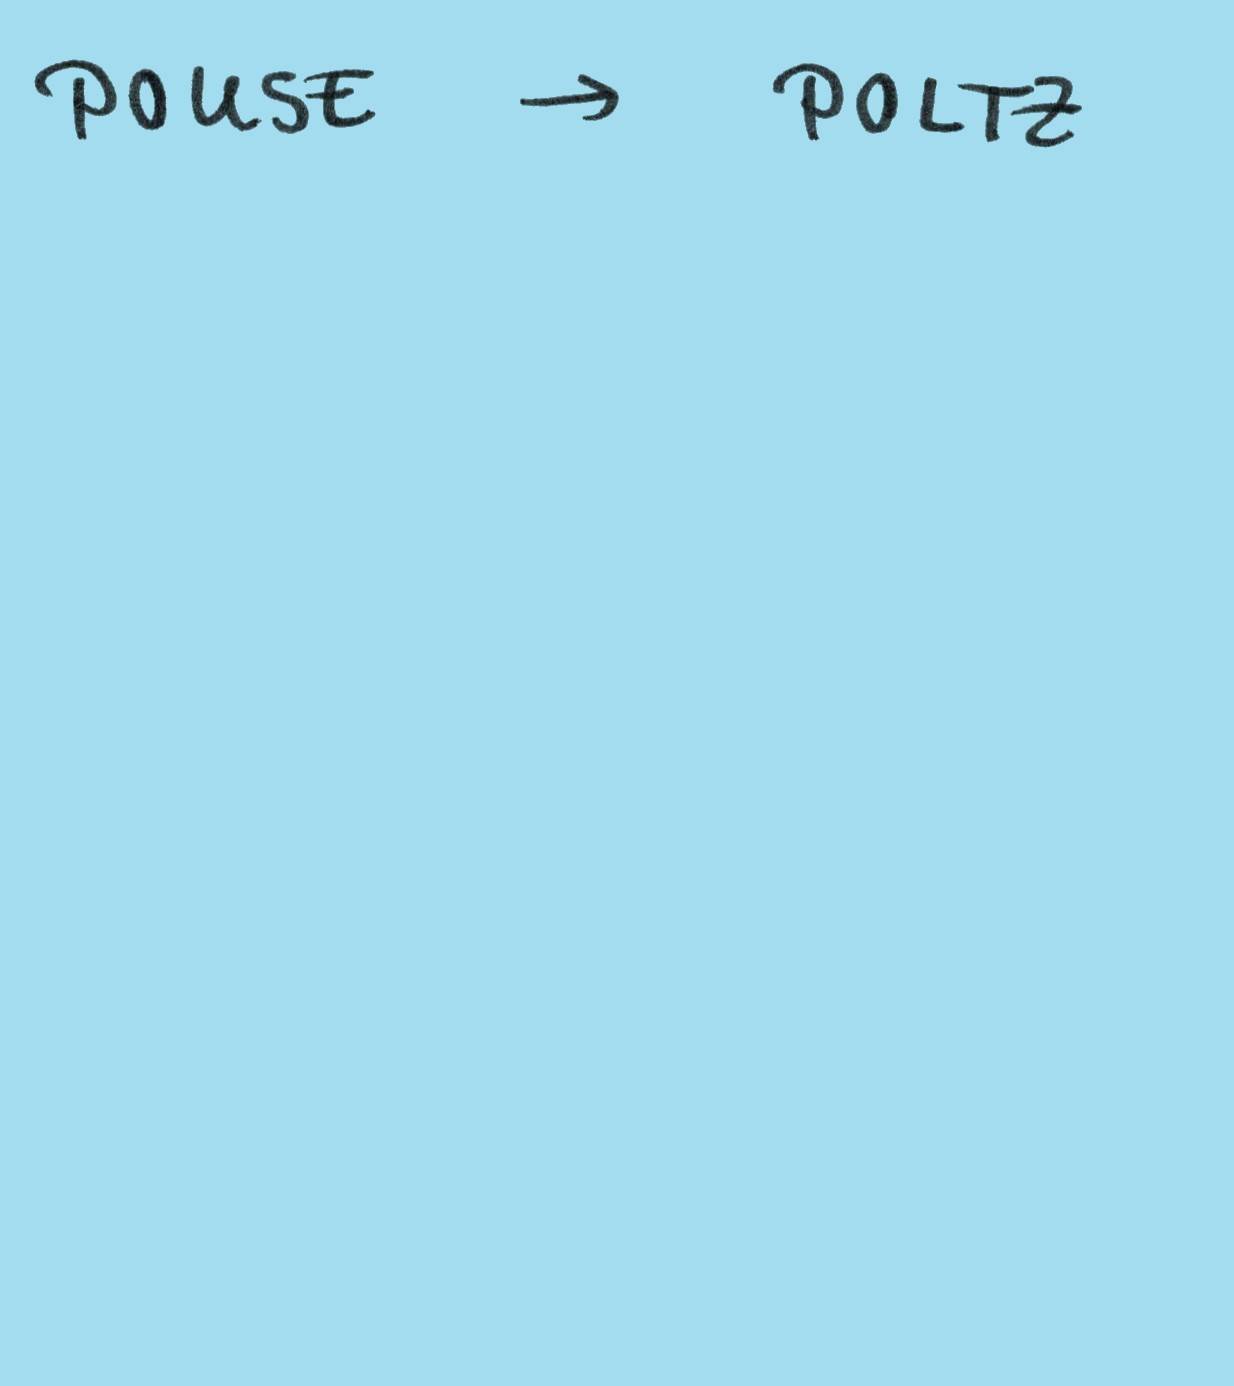 POUSE → POLTZ